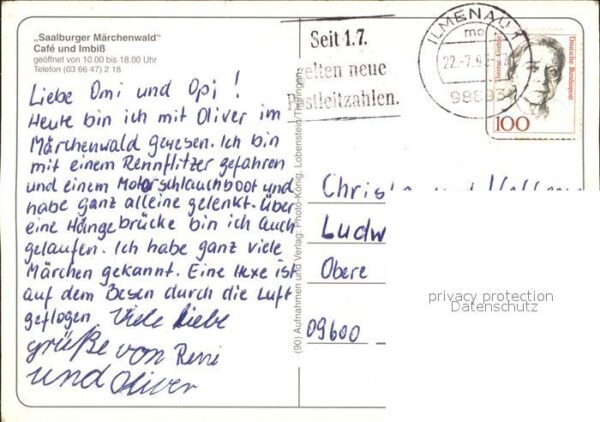 „Saalburger Märchenwald"
Café und Imbiß
geöffnet von 10.00 bis 18.00 Uhr
Telefon (03 66 47) 2 18
Liebe Omi und Opi !
Heute bin ich mit Oliver im
Märchenwald gewesen. Ich bin
mit einem Rennflitzer gefahren
und einem Motorschlauchboot und
habe ganz alleine gelenkt. Über
eine Hängebrücke bin ich auch
gelaufen. Ich habe ganz viele
Märchen gekannt. Eine Hexe ist
auf dem Besen durch die Luft
geflogen. Viele liebe
grüße von René
und Oliver
(90) Aufnahmen und Verlag: Photo-König, Lobenstein/Thüringen
Seit 1.7.
elten neue
Postleitzahlen.
ILMENAU 1
mo
22.-7.9
98693
Deutsche Bundespost
100
Ludw
Obere
09600
privacy protection
Datenschutz